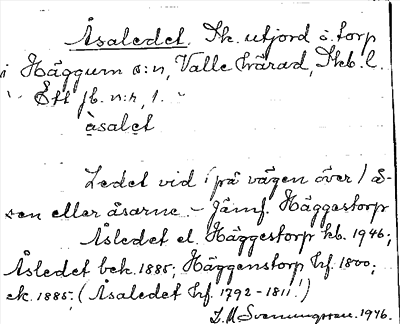 Åsaledet. Sk. utjord o. torp
i Häggum s:n, Valle härad, Skb. l.
Ett jb. n:r, 1.
åsalet
Ledet vid (på vägen över) å-
sen eller åsarne. - Jämf. Häggestorp
Åsledet el. Häggestorp kb. 1946;
Åsledet bek. 1885; Häggenstorp hf. 1800;
ek. 1885; (Åsaledet hf. 1792-1811!)
Svenungsson. 1946.